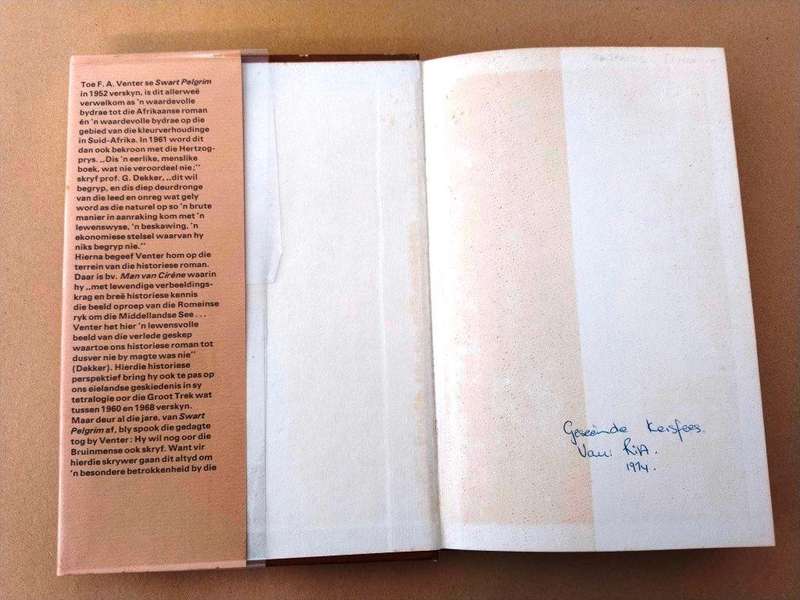 Toe F. A. Venter se Swart Pelgrim
in 1952 verskyn, is dit allerweë
verwelkom as 'n waardevolle
bydrae tot die Afrikaanse roman
én 'n waardevolle bydrae op die
gebied van die kleurverhoudinge
in Suid-Afrika. In 1961 word dit
dan ook bekroon met die Hertzog-
prys. „Dis 'n eerlike, menslike
boek, wat nie veroordeel nie;"
skryf prof. G. Dekker, „dit wil
begryp, en dis diep deurdronge
van die leed en onreg wat gely
word as die naturel op so 'n brute
manier in aanraking kom met 'n
lewenswyse, 'n beskawing, 'n
ekonomiese stelsel waarvan hy
niks begryp nie."
Hierna begeef Venter hom op die
terrein van die historiese roman.
Daar is bv. Man van Ciréne waarin
hy „met lewendige verbeeldings-
krag en breë historiese kennis
die beeld oproep van die Romeinse
ryk om die Middellandse See . . .
Venter het hier 'n lewensvolle
beeld van die verlede geskep
waartoe ons historiese roman tot
dusver nie by magte was nie"
(Dekker). Hierdie historiese
perspektief bring hy ook te pas op
ons eielandse geskiedenis in sy
tetralogie oor die Groot Trek wat
tussen 1960 en 1968 verskyn.
Maar deur al die jare, van Swart
Pelgrim af, bly spook die gedagte
tog by Venter: Hy wil nog oor die
Bruinmense ook skryf. Want vir
hierdie skrywer gaan dit altyd om
'n besondere betrokkenheid by die
Geseënde Kersfees.
Van: Ria.
1974.